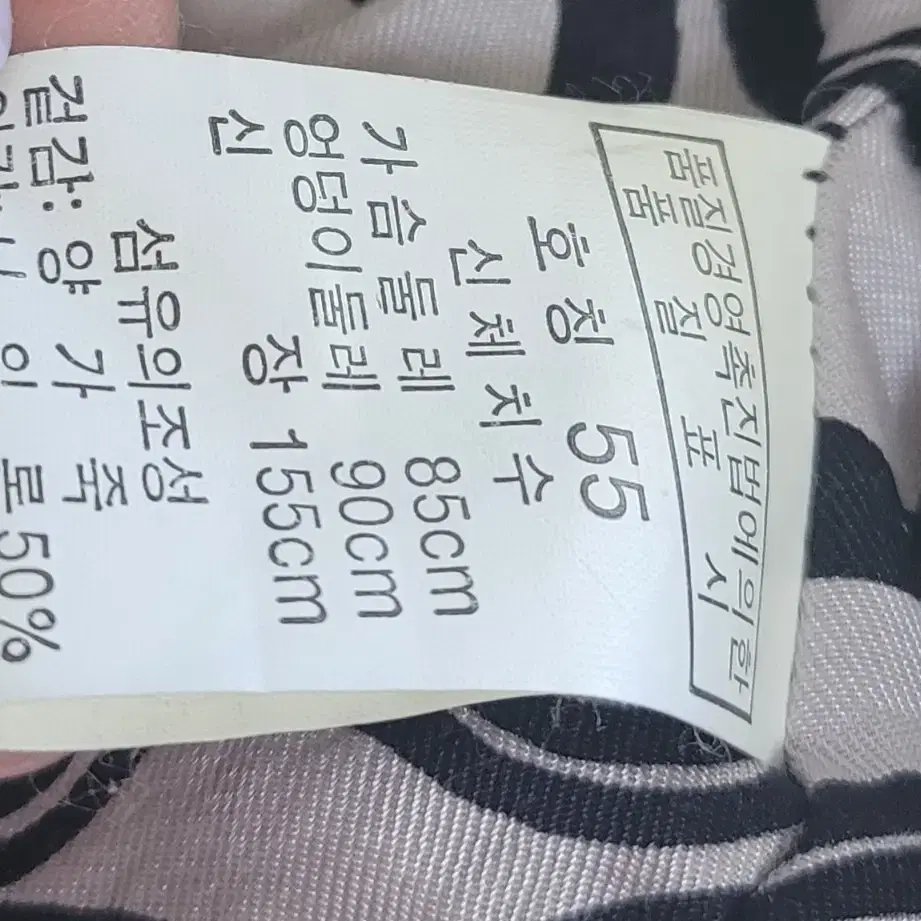 품질경영촉진법에의한
품 질 표 시
호칭 55
신체치수
가슴둘레 85cm
엉덩이둘레 90cm
신 장 155cm
섬유의조성
겉감: 양 가 죽
50%